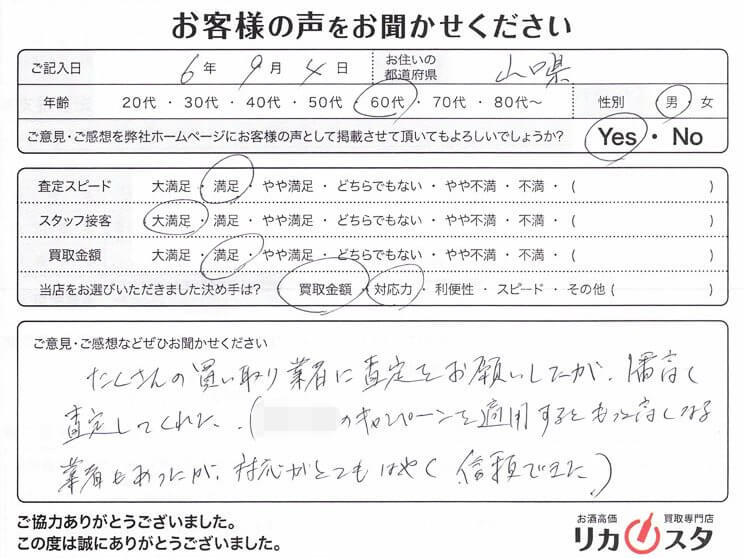 お客様の声をお聞かせください
ご記入日 6年 9月 4日 お住いの都道府県 山口県
年齢 20代 ・ 30代 ・ 40代 ・ 50代 ・ 60代 ・ 70代 ・ 80代〜 性別 男 ・ 女
ご意見・ご感想を弊社ホームページにお客様の声として掲載させて頂いてもよろしいでしょうか? Yes ・ No
査定スピード 大満足 ・ 満足 ・ やや満足 ・ どちらでもない ・ やや不満 ・ 不満 ・ ( )
スタッフ接客 大満足 ・ 満足 ・ やや満足 ・ どちらでもない ・ やや不満 ・ 不満 ・ ( )
買取金額 大満足 ・ 満足 ・ やや満足 ・ どちらでもない ・ やや不満 ・ 不満 ・ ( )
当店をお選びいただきました決め手は? 買取金額 ・ 対応力 ・ 利便性 ・ スピード ・ その他 ( )
ご意見・ご感想などぜひお聞かせください
たくさんの買い取り業者に査定をお願いしたが、1番高く
査定してくれた。(のキャンペーンを適用するともっと高くなる
業者もあったが、対応がとてもはやく信頼できた)
ご協力ありがとうございました。
この度は誠にありがとうございました。
お酒高価 買取専門店
リカスタ